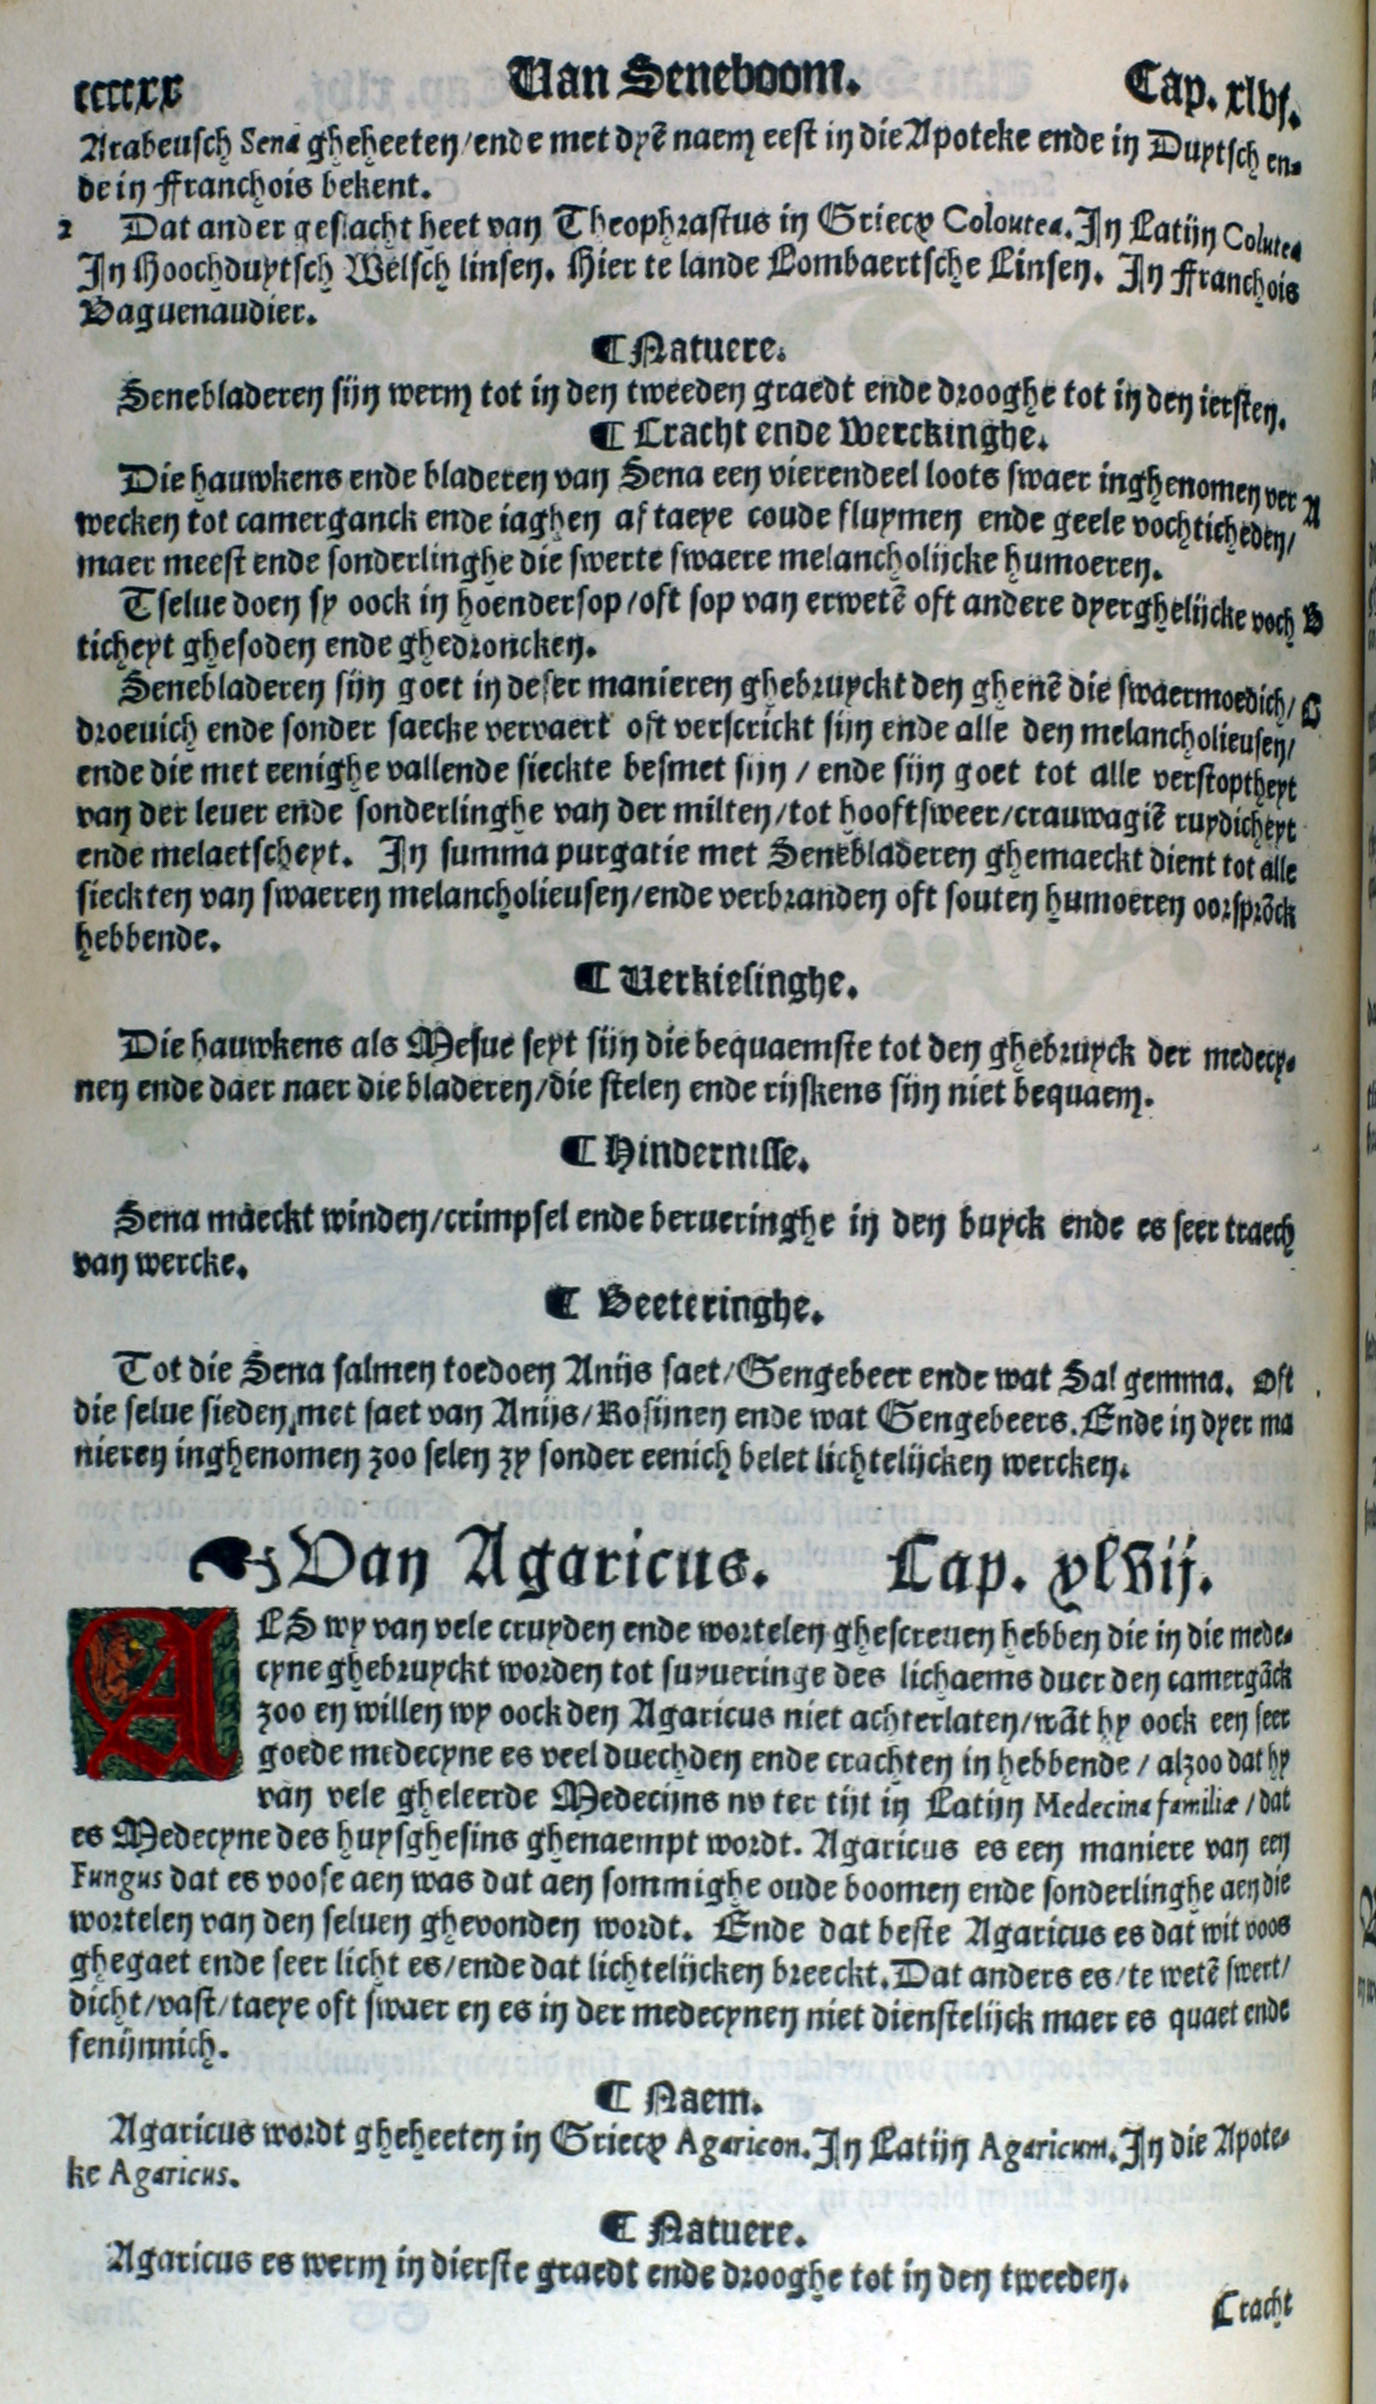 ccccxx Van Seneboom. Cap. xlvj.
Arabeusch Sena gheheeten/ende met dyē naem eest in die Apoteke ende in Duytsch en-
de in Franchois bekent.
2 Dat ander geslacht heet van Theophrastus in Griecx Coloutea. In Latijn Colutea
In Hoochduytsch Welsch linsen. Hier te lande Lombaertsche Linsen. In Franchois
Baguenaudier.
¶ Natuere.
Senebladeren sijn werm tot in den tweeden graedt ende drooghe tot in den iersten.
¶ Cracht ende Werckinghe.
Die hauwkens ende bladeren van Sena een vierendeel loots swaer inghenomen ver A
wecken tot camerganck ende iaghen af taeye coude fluymen ende geele vochticheden/
maer meest ende sonderlinghe die swerte swaere melancholijcke humoeren.
Tselue doen sy oock in hoendersop/oft sop van erwetē oft andere dyerghelijcke voch B
ticheyt ghesoden ende ghedroncken.
Senebladeren sijn goet in deser manieren ghebruyckt den ghenē die swaermoedich/ C
droeuich ende sonder saecke vervaert oft verscrickt sijn ende alle den melancholieusen/
ende die met eenighe vallende sieckte besmet sijn / ende sijn goet tot alle verstoptheyt
van der leuer ende sonderlinghe van der milten/tot hooftsweer/crauwagiē ruydicheyt
ende melaetscheyt. In summa purgatie met Senebladeren ghemaeckt dient tot alle
sieckten van swaeren melancholieusen/ende verbranden oft souten humoeren oorsprōck
hebbende.
¶ Verkiesinghe.
Die hauwkens als Mesue seyt sijn die bequaemste tot den ghebruyck der medecy-
nen ende daer naer die bladeren/die stelen ende rijskens sijn niet bequaem.
¶ Hindernisse.
Sena maeckt winden/crimpsel ende berueringhe in den buyck ende es seer traech
van wercke.
¶ Beeteringhe.
Tot die Sena salmen toedoen Anijs saet/Gengebeer ende wat Sal gemma. Oft
die selue sieden met saet van Anijs/Rosijnen ende wat Gengebeers. Ende in dyer ma
nieren inghenomen zoo selen zy sonder eenich belet lichtelijcken wercken.
Van Agaricus. Cap. xlvij.
ALS wy van vele cruyden ende wortelen ghescreuen hebben die in die mede-
cyne ghebruyckt worden tot suyueringe des lichaems duer den camergāck
zoo en willen wy oock den Agaricus niet achterlaten/wāt hy oock een seer
goede medecyne es veel duechden ende crachten in hebbende / alzoo dat hy
van vele gheleerde Medecijns nv ter tijt in Latijn Medecina familiæ /dat
es Medecyne des huysghesins ghenaempt wordt. Agaricus es een maniere van een
Fungus dat es voose aen was dat aen sommighe oude boomen ende sonderlinghe aen die
wortelen van den seluen ghevonden wordt. Ende dat beste Agaricus es dat wit voos
ghegaet ende seer licht es/ende dat lichtelijcken breeckt. Dat anders es/te wetē swert/
dicht/vast/taeye oft swaer en es in der medecynen niet dienstelijck maer es quaet ende
fenijnnich.
¶ Naem.
Agaricus wordt gheheeten in Griecx Agaricon. In Latijn Agaricum. In die Apote-
ke Agaricus.
¶ Natuere.
Agaricus es werm in dierste graedt ende drooghe tot in den tweeden.
Cracht